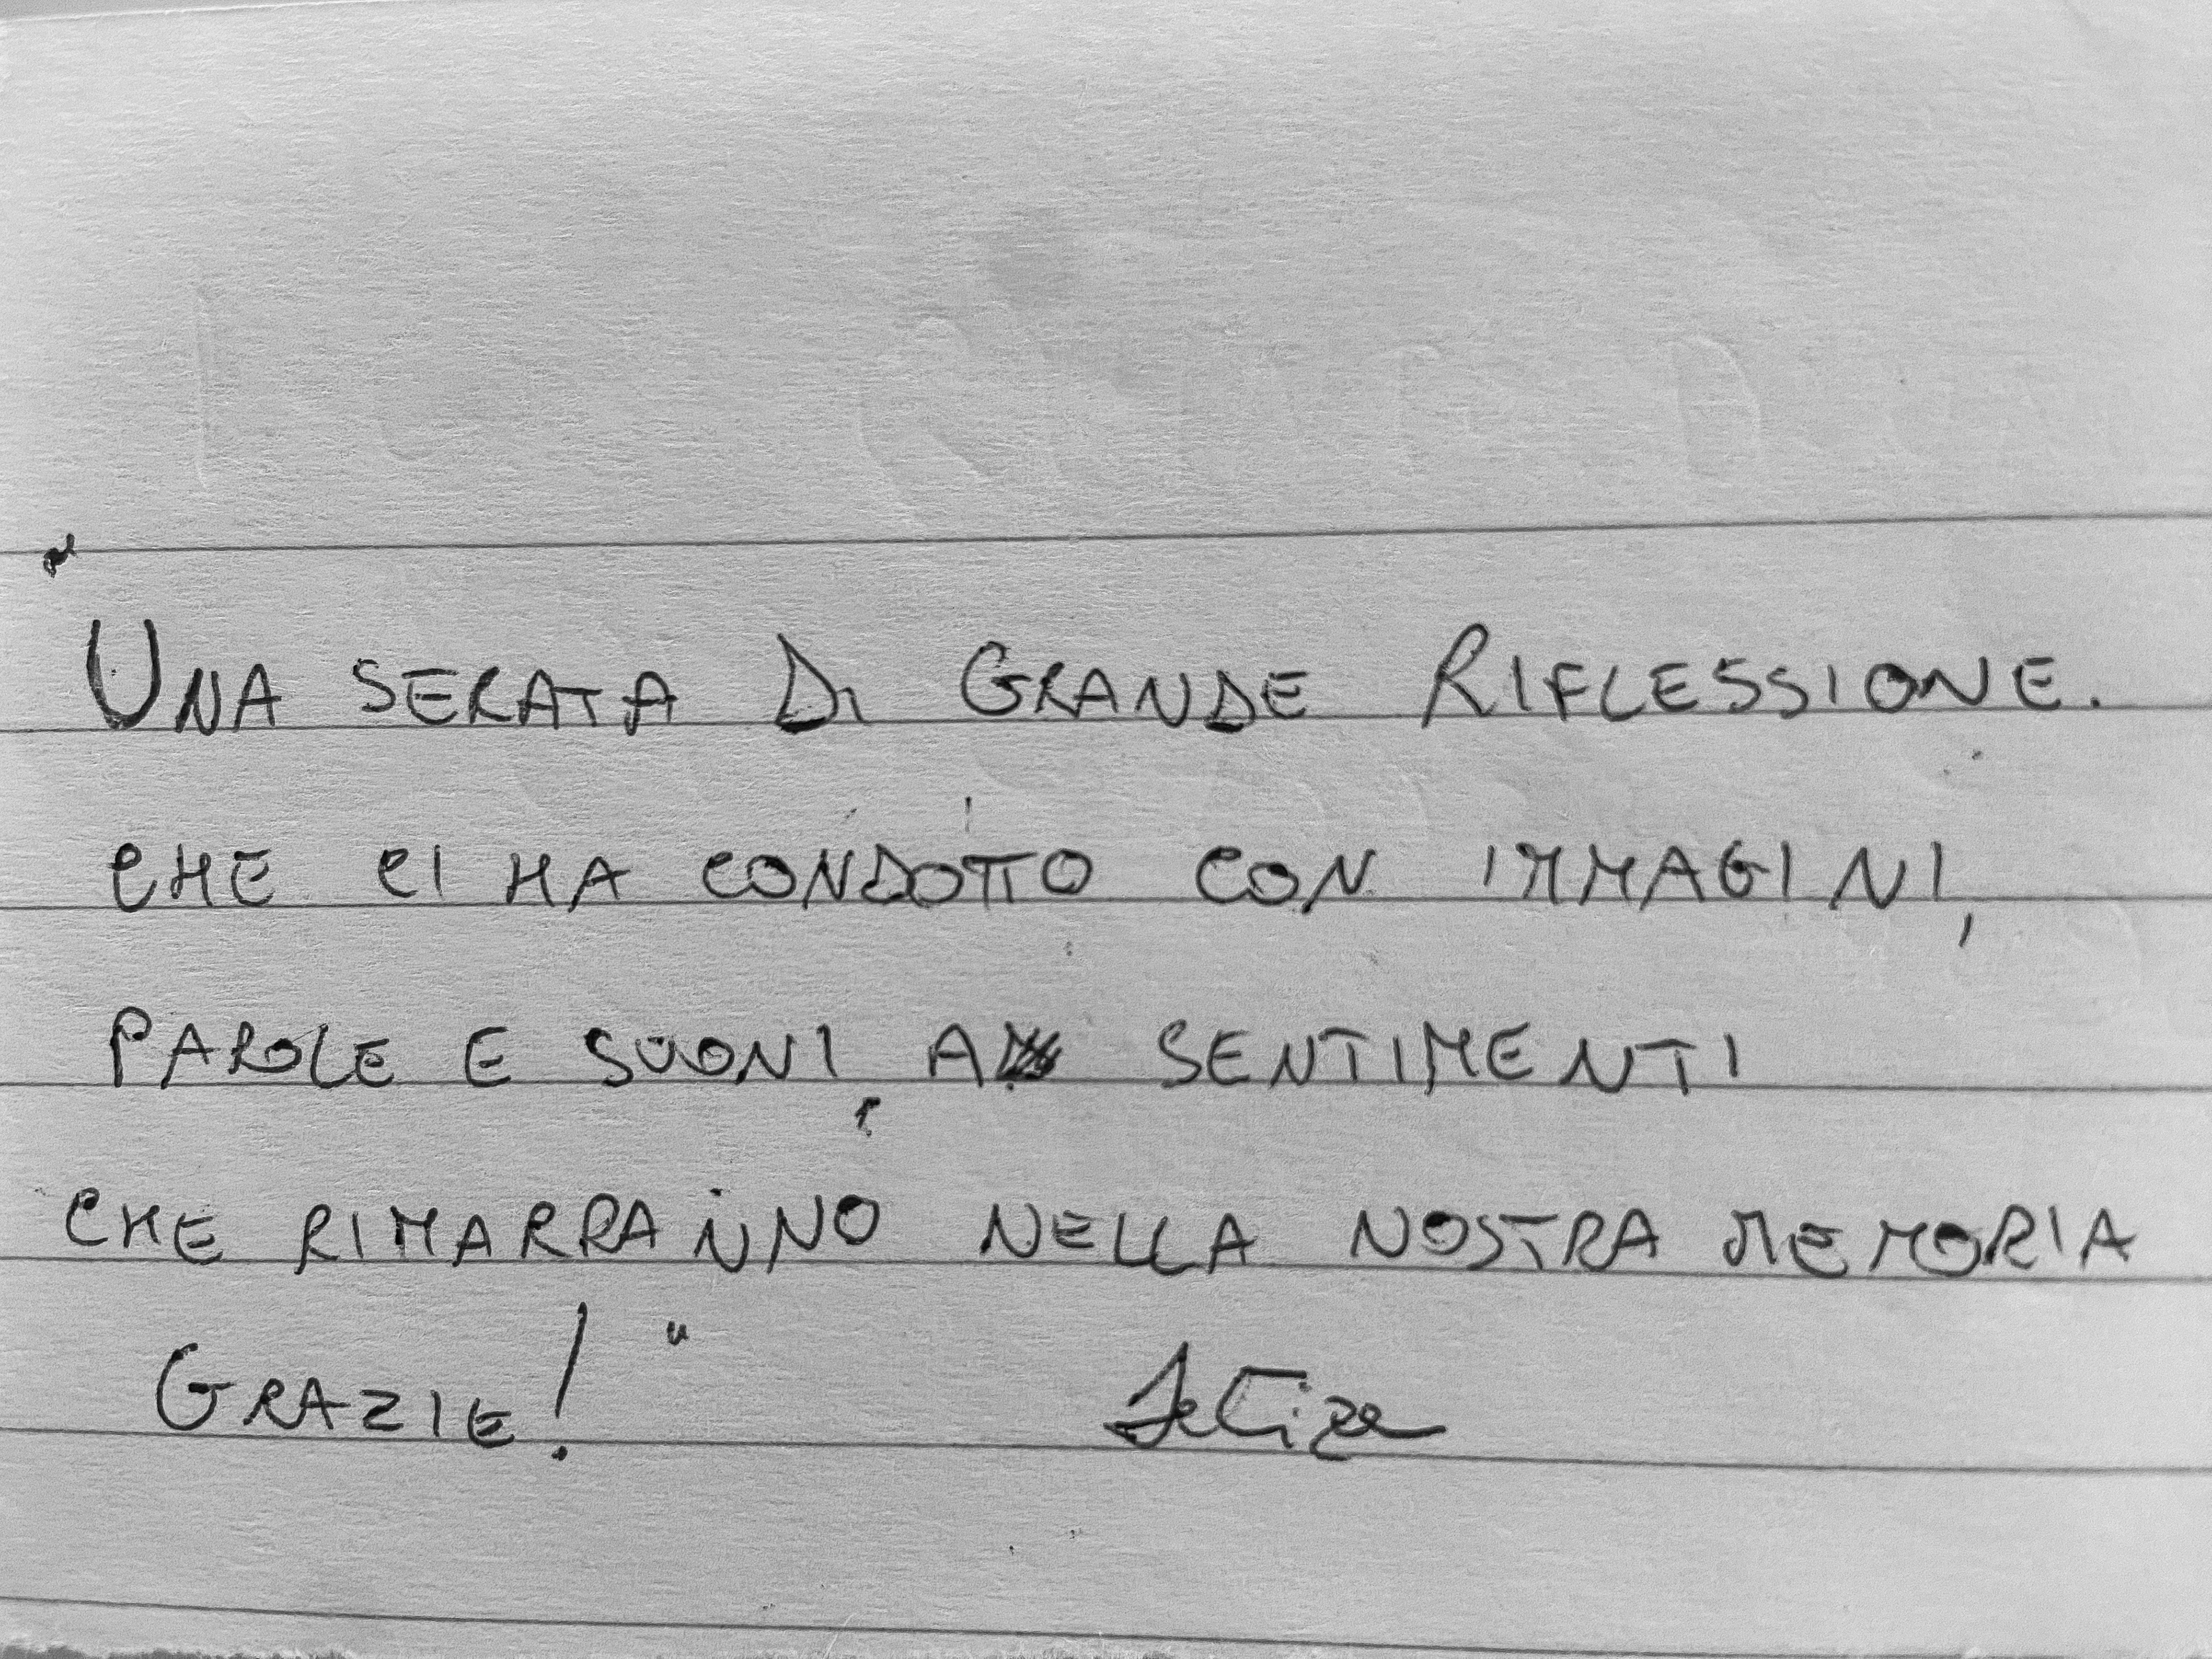 "
UNA SERATA DI GRANDE RIFLESSIONE.
CHE CI HA CONDOTTO CON IMMAGINI,
PAROLE E SUONI, A SENTIMENTI
CHE RIMARRANNO NELLA NOSTRA MEMORIA
GRAZIE! "